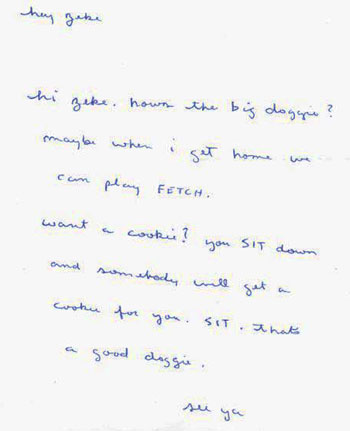 hey zeke
hi zeke. hows the big doggie?
maybe when i get home we
can play FETCH.
want a cookie? you SIT down
and somebody will get a
cookie for you. SIT. thats
a good doggie.
see ya